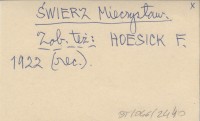 x
ŚWIERZ Mieczysław.
Zob. też: HOESICK F.
1922 (rec.).